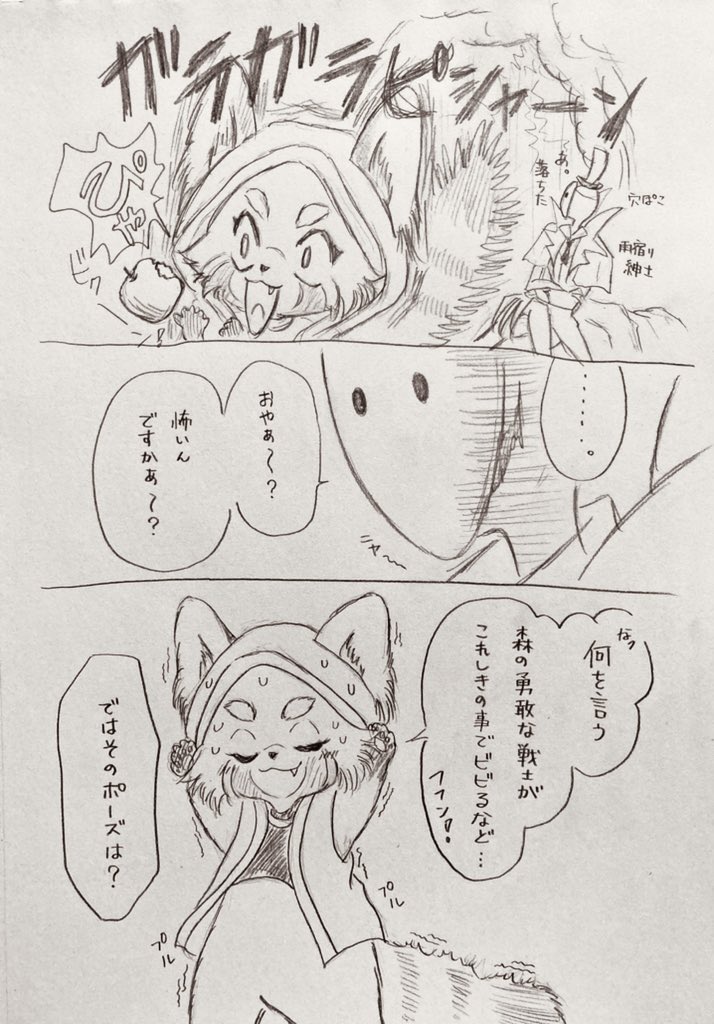 ガラガラピシャーン
あ。
落ちた
穴ぽこ
雨宿り
紳士
ぴゃ
ビクッ
‥‥‥。
おやぁ〜？
怖いん
ですかあ〜？
ニヤ〜
なっ
何を言う
森の勇敢な戦士が
これしきの事でビビるなど…
フフン♪
ではそのポーズは？
プル
プル